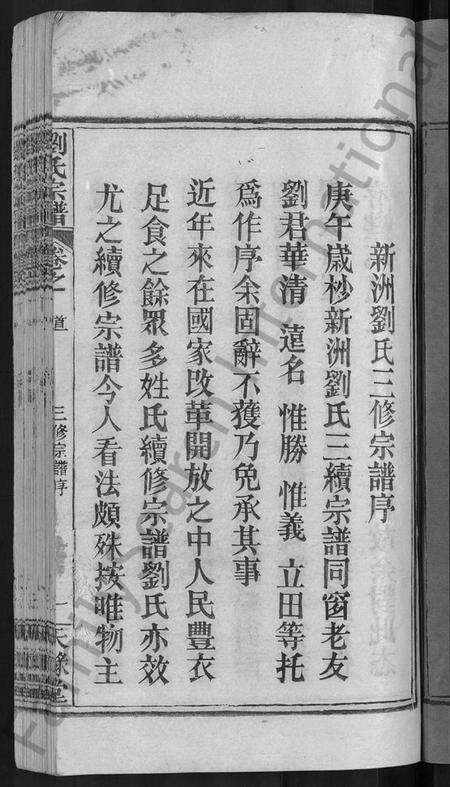 新洲劉氏三修宗譜序
庚午歲杪新洲劉氏三續宗譜同窗老友
劉君華清 遠名 惟勝 惟義 立田等托
爲作序余固辭不獲乃免承其事
近年來在國家改革開放之中人民豐衣
足食之餘眾多姓氏續修宗譜劉氏亦效
尤之續修宗譜今人看法頗殊按唯物主
劉氏宗譜 卷之 首 三修宗譜序 一
FamilySearch International